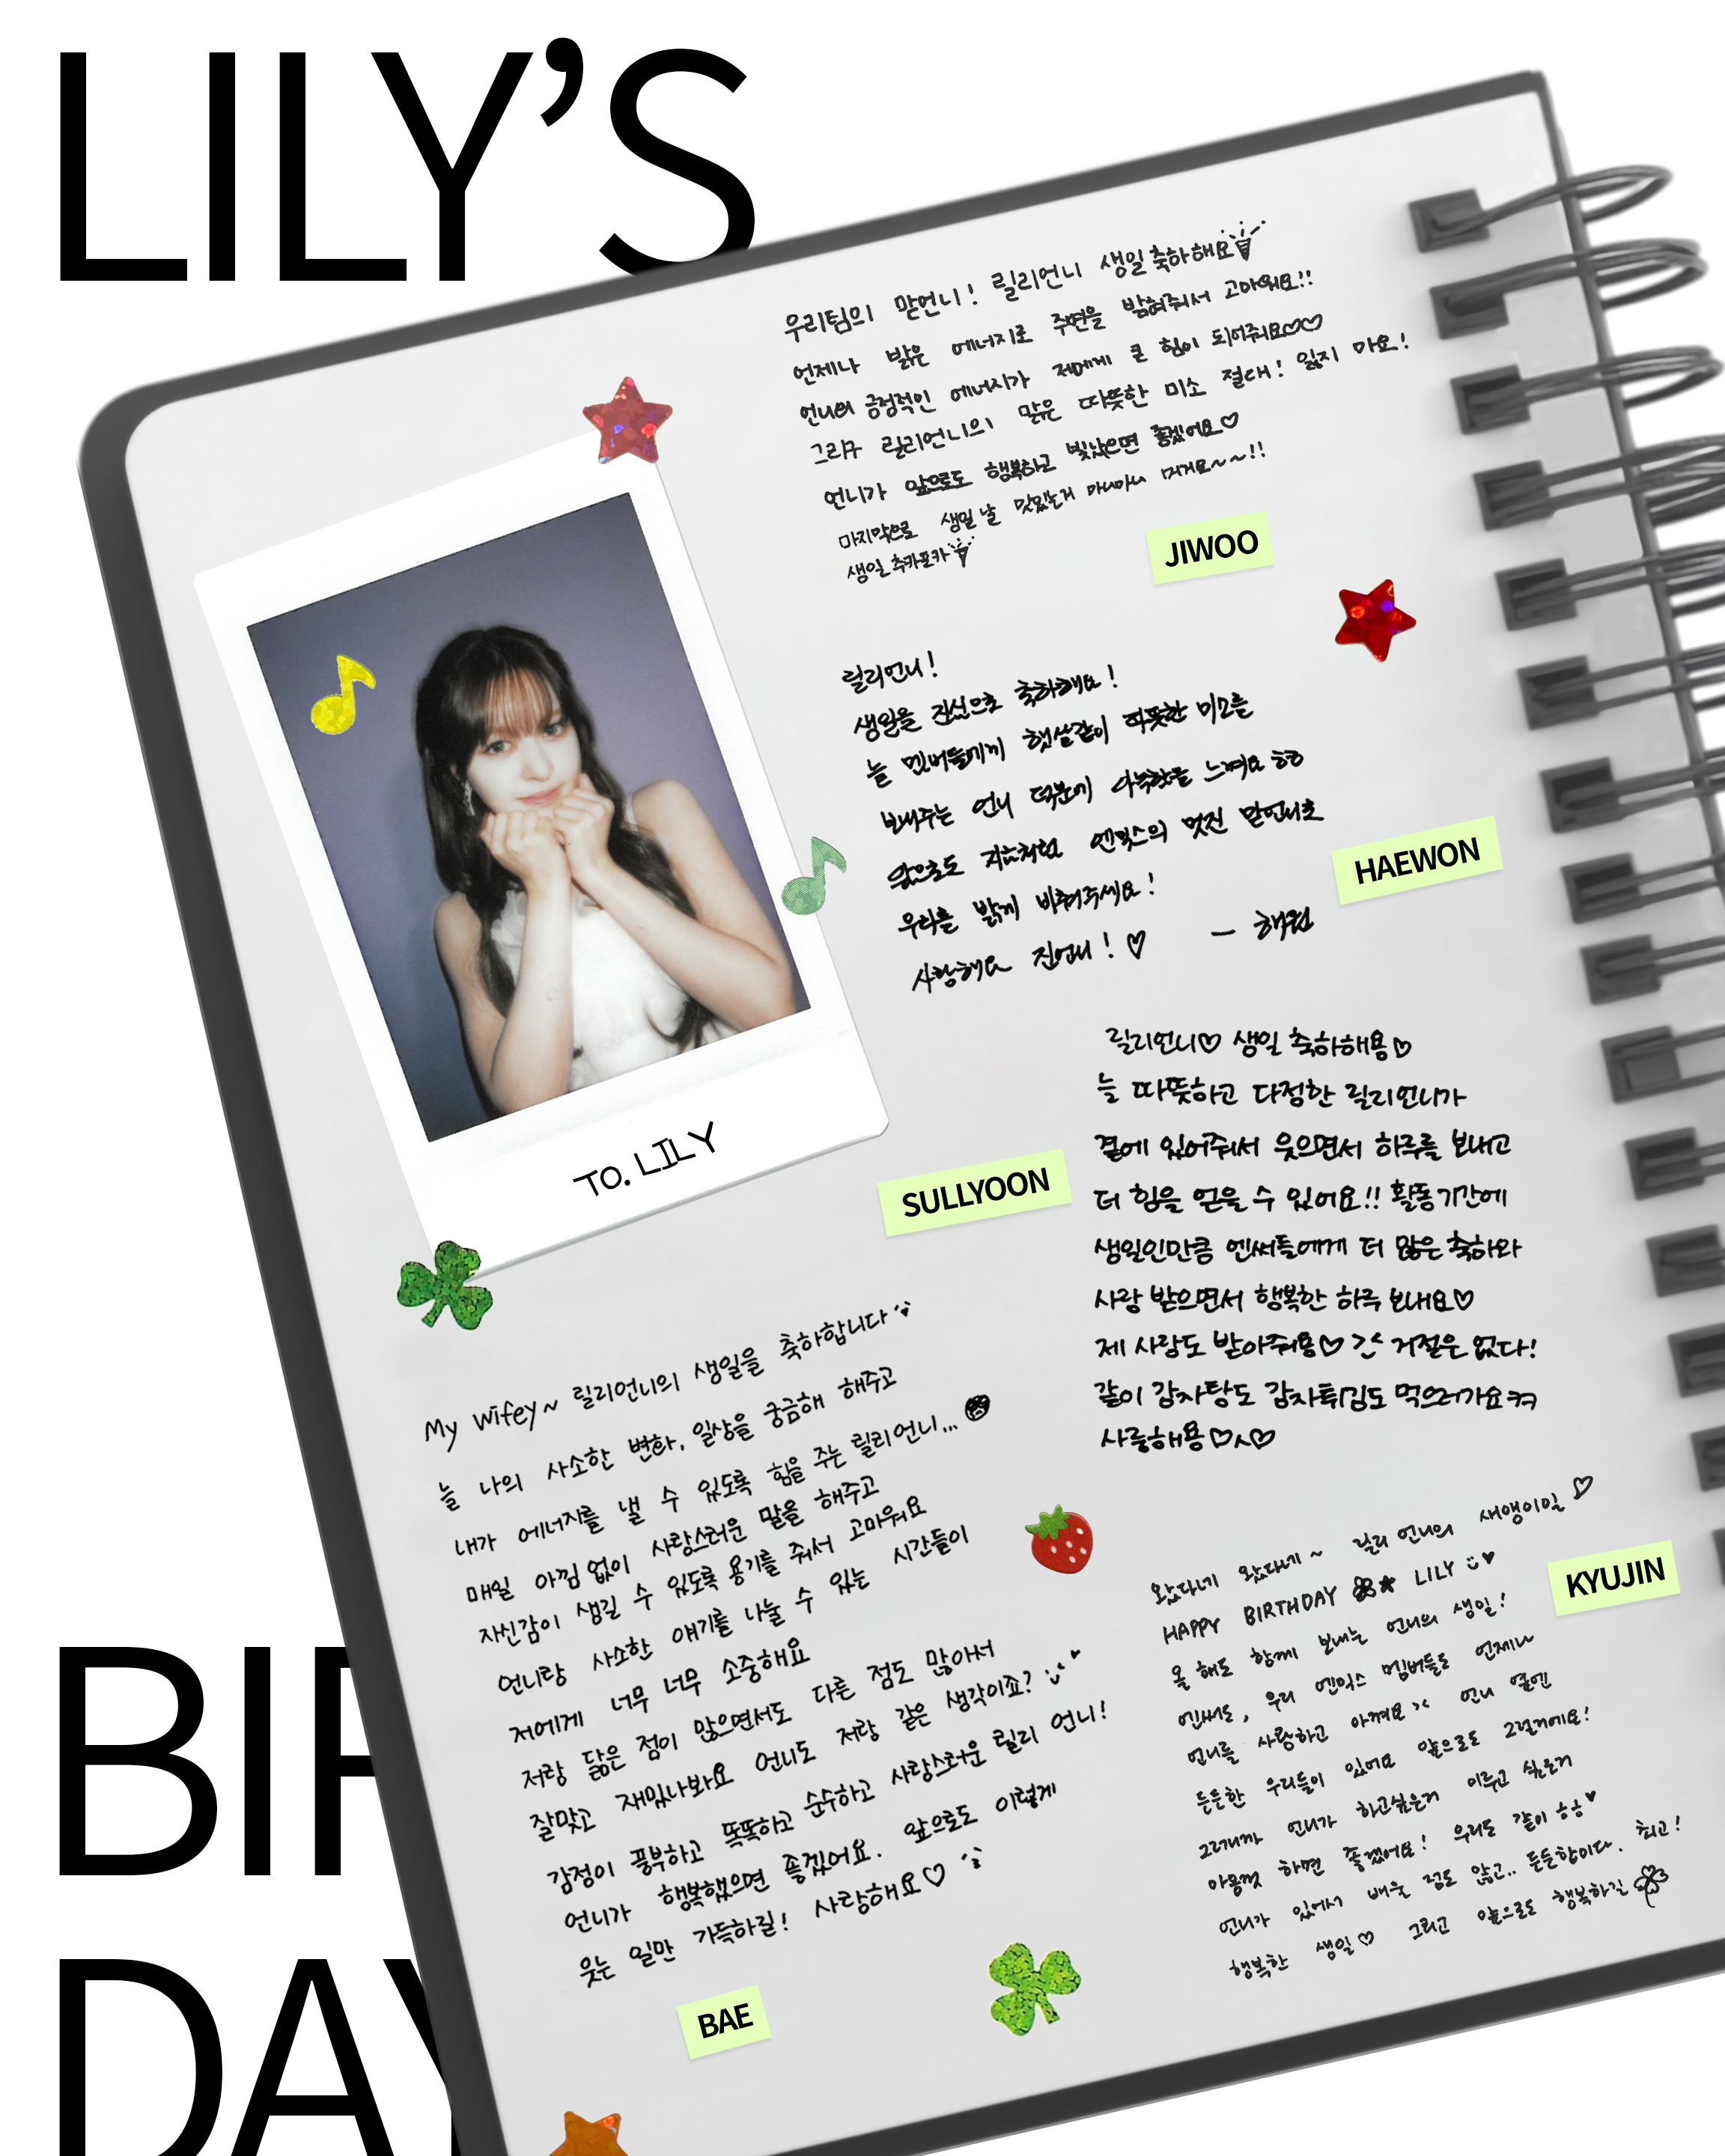 LILY'S
우리팀의 맏언니! 릴리언니 생일축하해요
언제나 밝은 에너지로 주변을 밝혀줘서 고마워요!!
언니의 긍정적인 에너지가 저에게 큰 힘이 되어줘요♡♡
그리구 릴리언니의 맑은 따뜻한 미소 절대! 잃지 마요!
언니가 앞으로도 행복하고 빛났으면 좋겠어요♡
마지막으로 생일날 맛있는거 마니마니 머거요~~!!
생일 추카포카
JIWOO
릴리언니!
생일을 진심으로 축하해요!
늘 멤버들에게 햇살같이 따뜻한 미소를
보내주는 언니 덕분에 아늑함을 느껴요 ㅎㅎ
앞으로도 지금처럼 엔믹스의 멋진 맏언니로
우리를 밝게 비춰주세요!
사랑해요 진언니! ♡ - 해원
HAEWON
TO. LILY
릴리언니♡ 생일 축하해용♡
늘 따뜻하고 다정한 릴리언니가
곁에 있어줘서 웃으면서 하루를 보내고
더 힘을 얻을 수 있어요!! 활동기간에
생일인만큼 엔써들에게 더 많은 축하와
사랑 받으면서 행복한 하루 보내요♡
제 사랑도 받아줘용♡ >< 거절은 없다!
같이 감자탕도 감자튀김도 먹으러가요 ㅋㅋ
사룽해용♡ㅅ♡
SULLYOON
My wifey~ 릴리언니의 생일을 축하합니다
늘 나의 사소한 변화, 일상을 궁금해 해주고
내가 에너지를 낼 수 있도록 힘을 주는 릴리언니...
매일 아낌 없이 사랑스러운 말을 해주고
자신감이 생길 수 있도록 용기를 줘서 고마워요
언니랑 사소한 얘기를 나눌 수 있는 시간들이
저에게 너무 너무 소중해요
저랑 닮은 점이 많으면서도 다른 점도 많아서
잘맞고 재밌나봐요 언니도 저랑 같은 생각이죠?
감정이 풍부하고 똑똑하고 순수하고 사랑스러운 릴리 언니!
언니가 행복했으면 좋겠어요. 앞으로도 이렇게
웃는 일만 가득하길! 사랑해요♡
BAE
왔다네 왔다네~ 릴리 언니의 새앵이일♡
HAPPY BIRTHDAY LILY
올 해도 함께 보내는 언니의 생일!
엔써도, 우리 엔믹스 멤버들도 언제나
언니를 사랑하고 아껴요 >< 언니 옆엔
든든한 우리들이 있어요 앞으로도 그럴거에요!
그러니까 언니가 하고싶은거 이루고 싶은거
마음껏 하면 좋겠어요! 우리도 같이 ㅎㅎ♥
언니가 있어서 배울 점도 많고.. 든든함이다. 최고!
행복한 생일♡ 그리고 앞으로도 행복하길
KYUJIN
BIR
DAY